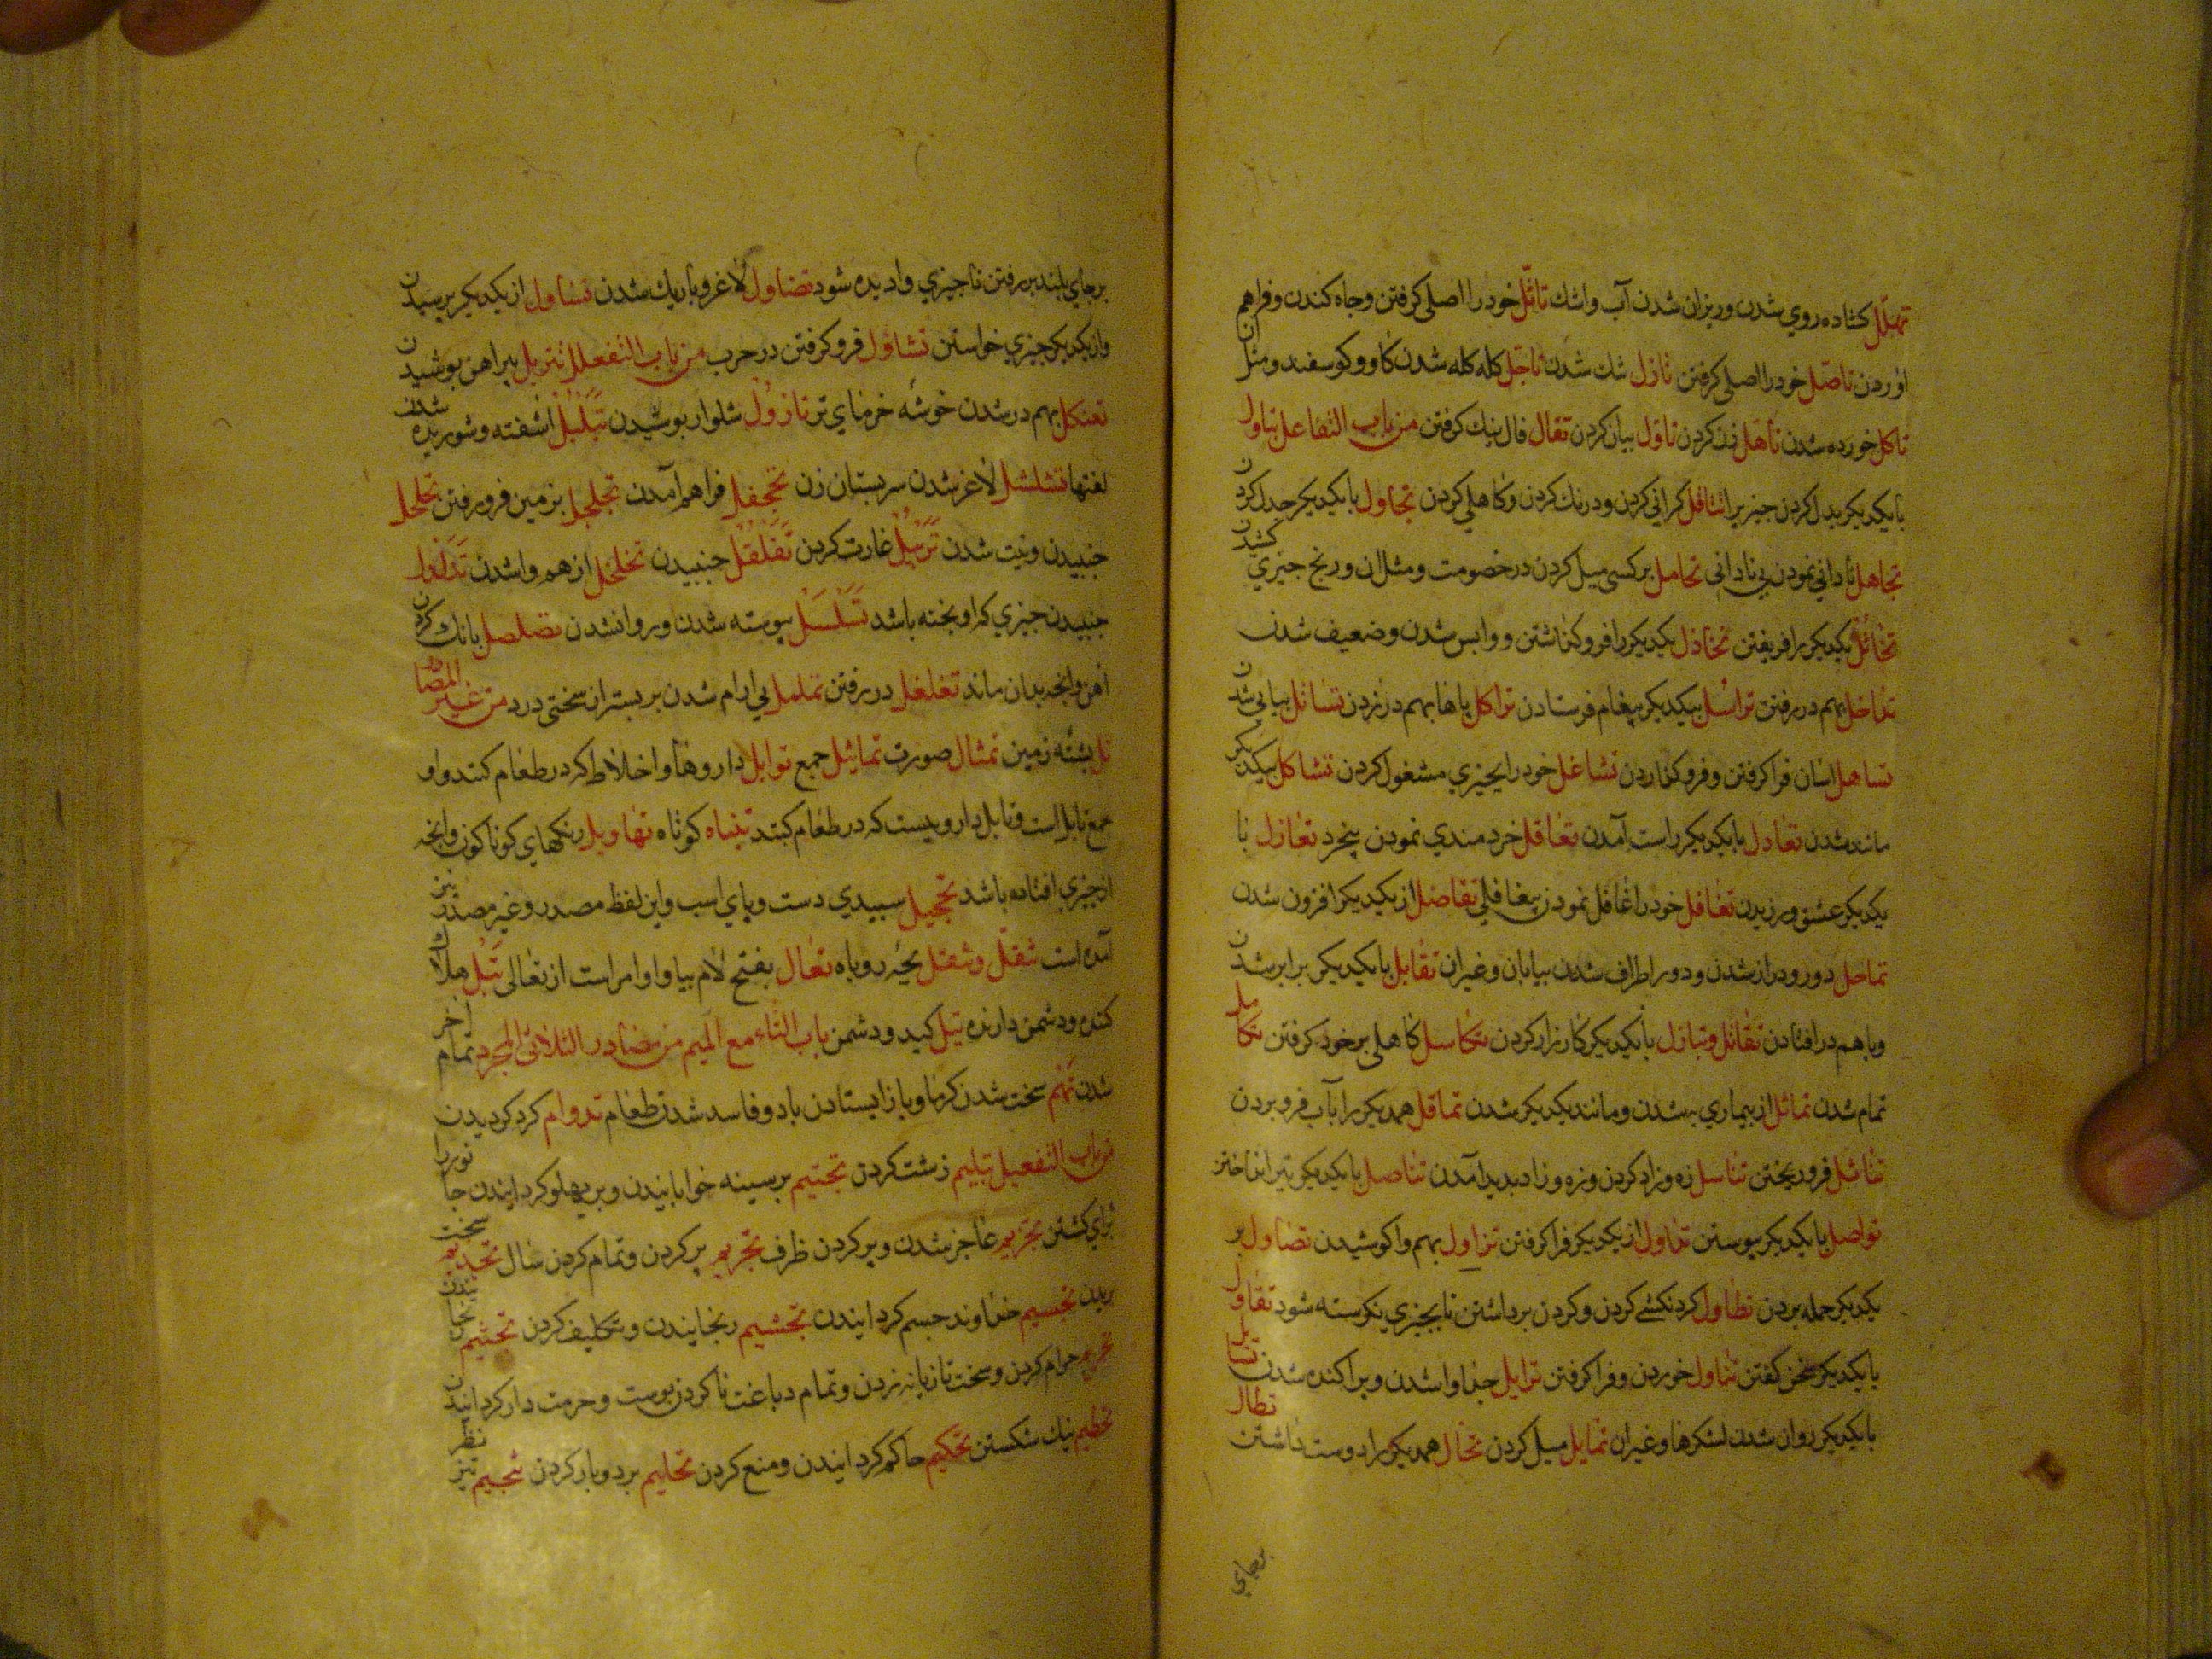 تهلّل کشاده روي شدن و ریزان شدن آب و اشك تاثّل خود را اصلی کرفتن و جاه کندن و فراهم
اوردن تاصّل خود را اصلی کرفتن تازل تنك شدن تاجّل کله کله شدن کاو و کوسفند و مثل ان
تاکل خورده شدن تاهّل زن کردن تاوّل بیان کردن تفال فال نیك کرفتن من باب التفاعل تباول
با یکدیکر بدل کردن چیزیرا تثاقل کرانی کردن و درنك کردن و کاهلی کردن تجاول با یکدیکر جدل کردن
تجاهل نادانی نمودن بی نادانی تحامل بر کسی میل کردن در خصومت و مثل ان و رنج چیزي کشیدن
تخاتل یکدیکر را فریفتن تخاذل یکدیکر را فرو کذاشتن و واپس شدن و ضعیف شدن
تداخل بهم در رفتن تراسل بیکدیکر پیغام فرستادن تراکل پاها بهم در زدن تسائل پیاپی شدن
تساهل اسان فرا کرفتن و فرو کذاردن تشاغل خود را بچیزي مشغول کردن تشاکل بیکدیکر
مانند شدن تعادل با یکدیکر راست آمدن تعاقل خردمندي نمودن بیخرد تغازل با
یکدیکر عشق ورزیدن تغافل خود را غافل نمودن بیغافلی تفاضل از یکدیکر افزون شدن
تماحل دور و دراز شدن و دور اطراف شدن بیابان و غیر ان تقابل با یکدیکر برابر شدن
و با هم در افتادن تقاتل و تبازل با یکدیکر کارزار کردن تکاسل کاهلی بر خود کرفتن تکامل
تمام شدن تماثل از بیماري به شدن و مانند یکدیکر شدن تماقل همدیکر را بآب فرو بردن
تناثل فرو ریختن تناسل زه و زاد کردن و زه و زاد بدید آمدن تناضل با یکدیکر تیر انداختن
تواصل با یکدیکر پیوستن تداول از یکدیکر فرا کرفتن تزاول بهم وا کوشیدن تصاول بر
یکدیکر حمله بردن تطاول کردنکشی کردن و کردن برداشتن تا بچیزي نکرسته شود تقاول
با یکدیکر سخن کفتن تناول خوردن و فرا کرفتن تزایل جدا واشدن و پراکنده شدن تسایل
با یکدیکر روان شدن لشکرها و غیر ان تمایل میل کردن تخال همدیکر را دوست داشتن تطال
برجاي
برجاي بلند بر رفتن تا چیزي وا دیده شود تضاول لاغر و باریك شدن تساول از یکدیکر پرسیدن
و از یکدیکر چیزي خواستن تشاول فرو کرفتن در حرب من باب التفعلل تسربل پیراهن پوشیدن
تعثکل بهم در شدن خوشه خرماي تر تازول شلوار پوشیدن تبلبل آشفته و شوریده شدن
لغتها تشلشل لاغر شدن سر پستان زن تجحفل فراهم آمدن تجلجل بزمین فرو رفتن تحلحل
جنبیدن و نیت شدن تربل غارت کردن تقلقل جنبیدن تخلخل از هم واشدن تذلذل
جنبیدن چیزي که اویخته باشد تسلسل پیوسته شدن و روان شدن تصلصل بانك کردن
آهن و انچه بدان ماند تغلغل در رفتن تململ بی ارام شدن بر بستر از سختی درد من غیر المصادر
تل پشته زمین تمثال صورت تماثیل جمع توابل داروها و اخلاط که در طعام کنند و او
جمع تابل است و تابل داروییست که در طعام کنند تنباه کوتاه تهاویل رنکهاي کوناکون و انچه
از چیزي افتاده باشد تحجیل سپیدي دست و پاي اسب و این لفظ مصدر و غیر مصدر نیز
آمده است تتفل و تتفل بچه روباه تعال بفتح لام بیا و او امر است از تعالی تبل هلاك
کننده و دشمن دارنده تبل کید و دشمن باب التاء مع المیم من مصادر الثلاثی المجرد تمام آخر
شدن تهم سخت شدن کرما و باز ایستادن باد و فاسد شدن طعام تدوام کرد کردیدن
من باب التفعیل تبلیم زشت کردن تجثیم بر سینه خوابانیدن و بر پهلو کردانیدن جانور را
براي کشتن تجزیم عاجز شدن و پر کردن ظرف تجریم پر کردن و تمام کردن سال تجذیم سخت
بریدن تجسیم خداوند جسم کردانیدن تجشیم رنجانیدن و تکلیف کردن تحشیم رنجانیدن
تحریم حرام کردن و سخت تازیانه زدن و تمام دباغت ناکردن پوست و حرمت دار کردانیدن
تحطیم نیك شکستن تحکیم حاکم کردانیدن و منع کردن تحلیم بردوبار کردن تحجیم تیز نظر